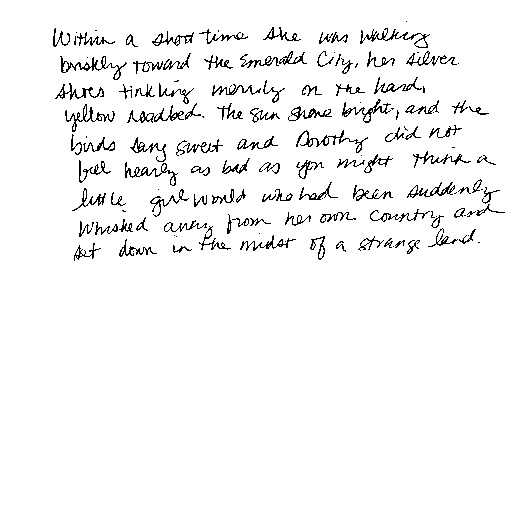 Within a short time she was walking
briskly toward the Emerald City, her silver
shoes tinkling merrily on the hard,
yellow roadbed. The sun shone bright, and the
birds sang sweet and Dorothy did not
feel nearly as bad as you might think a
little girl would who had been suddenly
whisked away from her own country and
set down in the midst of a strange land.